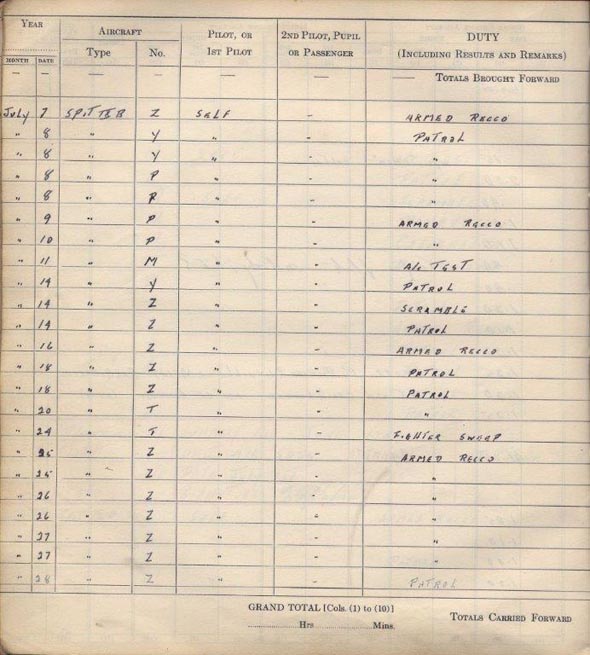 YEAR AIRCRAFT PILOT, OR 2ND PILOT, PUPIL DUTY
MONTH DATE Type No. 1ST PILOT OR PASSENGER (INCLUDING RESULTS AND REMARKS)
— — — — — — — TOTALS BROUGHT FORWARD
July 7 SPIT Z SELF - ARMED RECCO
" 8 " Y " - PATROL
" 8 " Y " - "
" 8 " P " - "
" 8 " R " - "
" 9 " P " - ARMED RECCO
" 10 " P " - "
" 11 " M " - A/C TEST
" 14 " Y " - PATROL
" 14 " Z " - SCRAMBLE
" 14 " Z " - PATROL
" 16 " Z " - ARMED RECCO
" 18 " Z " - PATROL
" 18 " Z " - PATROL
" 20 " T " - "
" 24 " T " - FIGHTER SWEEP
" " Z " - ARMED RECCO
" 25 " Z " - "
" 26 " Z " - "
" 26 " Z " - "
" 27 " Z " - "
" 27 " Z " - "
" 28 " Z " - PATROL
GRAND TOTAL [Cols. (1) to (10)] TOTALS CARRIED FORWARD
Hrs Mins.